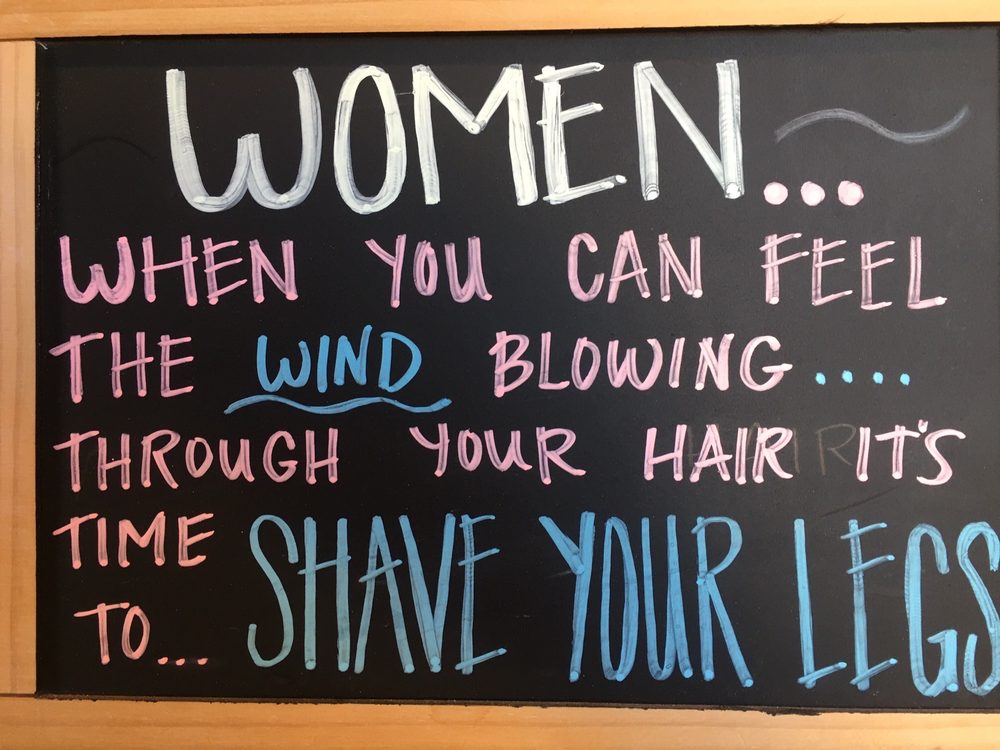 WOMEN...
WHEN YOU CAN FEEL
THE WIND BLOWING....
THROUGH YOUR HAIR IT'S
TIME
TO... SHAVE YOUR LEGS